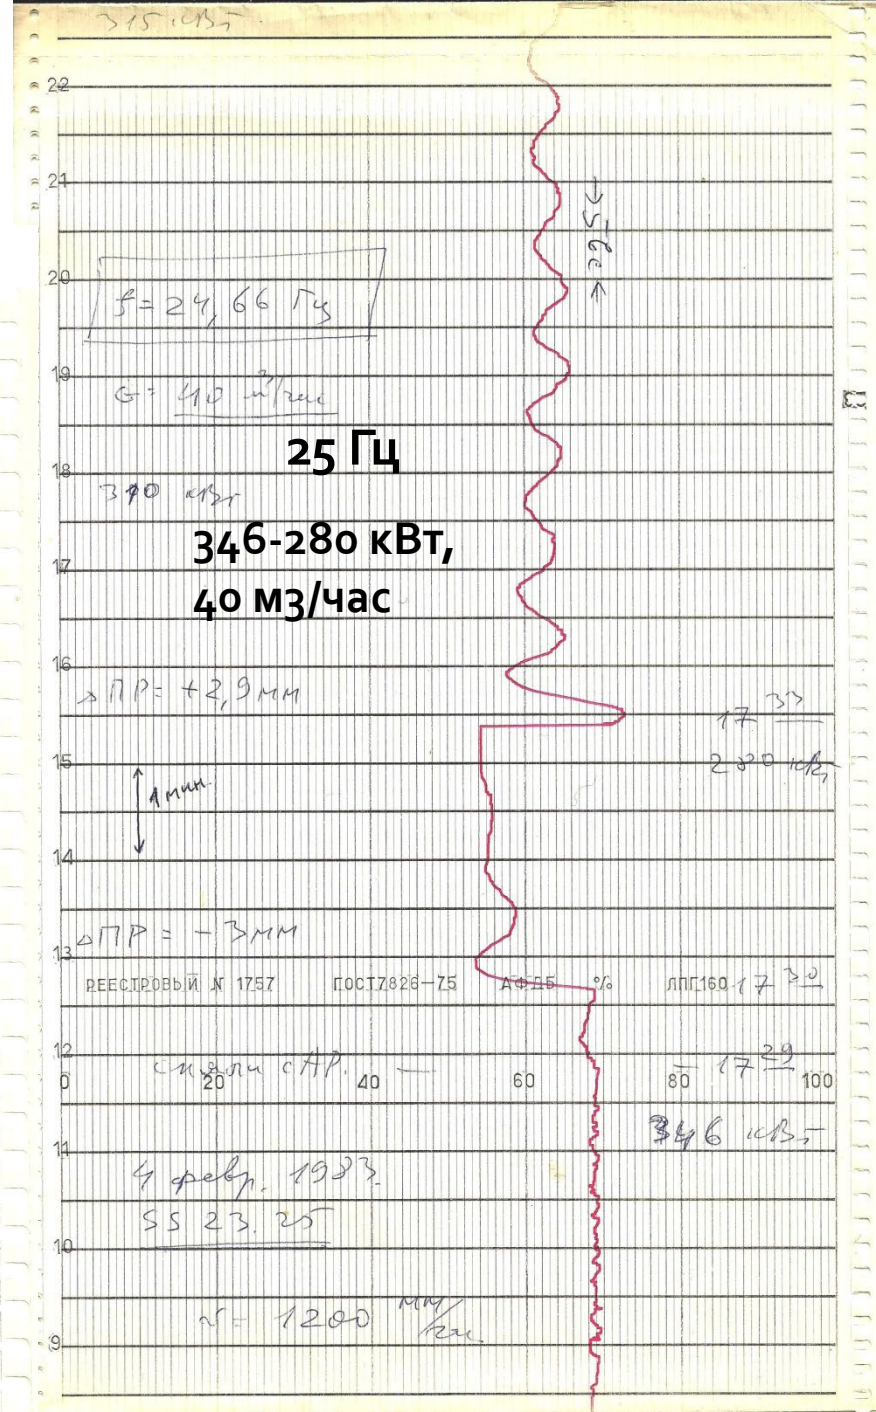 315 кВт.
22
21
56с
20
f = 24,66 Гц
19
G = 40 м³/час
25 Гц
18
310 кВт
346-280 кВт,
17
40 м3/час
16
ΔПР = +2,9мм
17 33
15
280 кВт
1 мин.
14
ΔПР = -3мм
13
РЕЕСТРОВЫЙ N 1757 ГОСТ7826-75 % ЛПГ160 17 30
12
сняли с АР. — — 17 29
0 20 40 60 80 100
346 кВт
11
4 февр. 1983.
55 23.25
10
v = 1200 мм/час
9